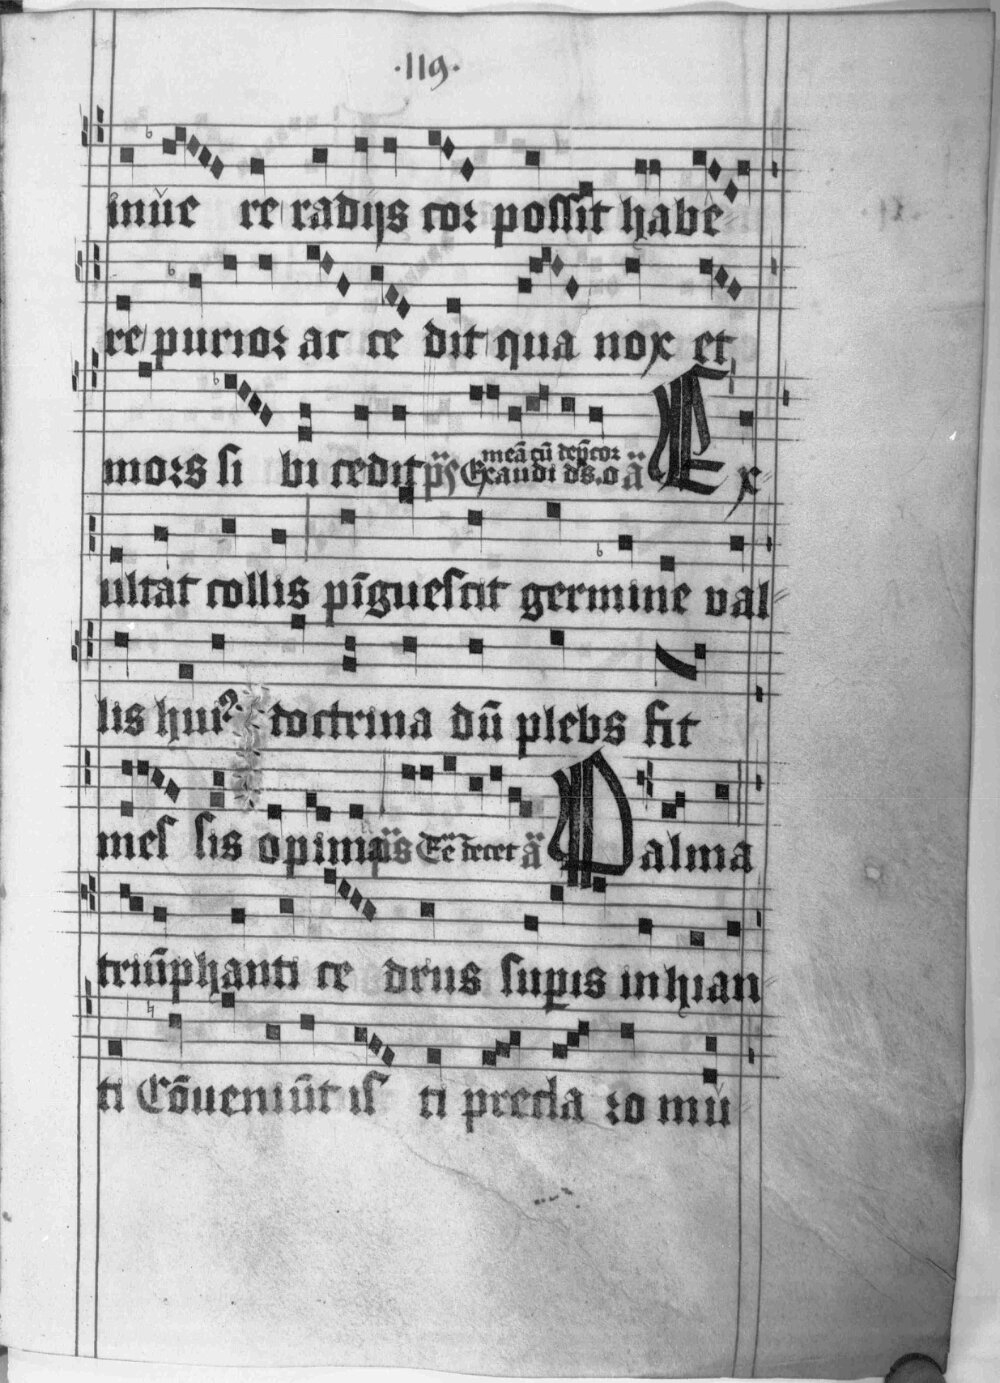 ·119·
inūe re radijs cor possit habe
re purior ac ce dit qua nox et
mors si bi cedit p̄s Exaudi ds. o meā cū dep̄cor ā Ex
ultat collis pīguescit germine val
lis hui⁹ doctrina dū plebs fit
mes sis opima p̄s Te decet ā Palma
triūphanti ce dens suꝑis inhian
ti Cōueniūt is ti precla ro mū